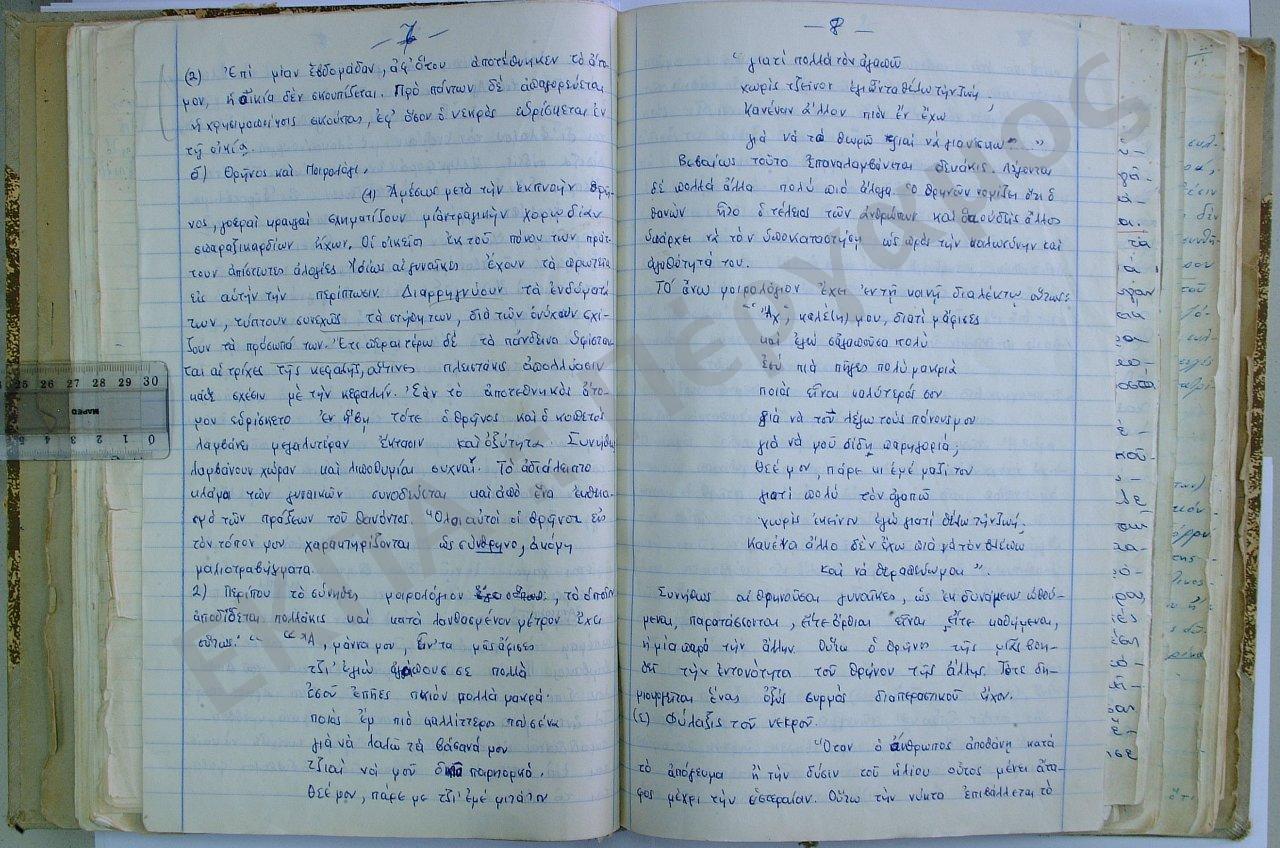 — 7 —
(2) Ἐπὶ μίαν ἑβδομάδαν, ἀφ' ὅτου ἀποτέθνηκεν τὸ ἄτο-
μον, ἡ οἰκία δὲν σκουπίζεται. Πρὸ πάντων δὲ ἀπαγορεύεται
ἡ χρησιμοποίησις σκούπας, ἐφ' ὅσον ὁ νεκρὸς εὑρίσκεται ἐν
τῇ οἰκίᾳ.
δ) Θρῆνος καὶ Μοιρολόγι.
(1) Ἀμέσως μετὰ τὴν ἐκπνοὴν θρῆ-
νος, γοεραὶ κραυγαὶ σχηματίζουν μίαν τραγικὴν χορῳδίαν
σπαραξικαρδίων ἤχων. Οἱ οἰκεῖοι ἐκ τοῦ πόνου των πράτ-
τουν ἀπίστευτες ἀλογίες. Ἰδίως αἱ γυναῖκες ἔχουν τὰ πρωτεῖα
εἰς αὐτὴν τὴν περίπτωσιν. Διαρρηγνύουν τὰ ἐνδύματά
των, τύπτουν συνεχῶς τὰ στήθη των, διὰ τῶν ὀνύχων σχί-
ζουν τὰ πρόσωπά των. Ἔτι περαιτέρω δὲ τὰ πάνδεινα ὑφίσταν
ται αἱ τρίχες τῆς κεφαλῆς, αἵτινες πλειστάκις ἀπολλύουσιν
κάθε σχέσιν μὲ τὴν κεφαλήν. Ἐὰν τὸ ἀποτεθνηκὸς ἄτο-
μον εὑρίσκετο ἐν ἥβῃ τότε ὁ θρῆνος καὶ ὁ κοπετὸς
λαμβάνει μεγαλυτέραν ἔκτασιν καὶ ὀξύτητα. Συνήθως
λαμβάνουν χώραν καὶ λιποθυμίαι συχναί. Τὸ ἀδιάλειπτο
κλάμα τῶν γυναικῶν συνοδεύεται καὶ ἀπὸ ἕνα ἐκθεια-
σμὸ τῶν πράξεων τοῦ θανόντος. Ὅλοι αὐτοὶ οἱ θρῆνοι εἰς
τὸν τόπον μου χαρακτηρίζονται ὡς σύνθρηνο, ἀκόμη
μαλλιοτραβήγματα.
2) Περίπου τὸ σύνηθες μοιρολόγιον, τὸ ὁποῖον
ἀποδίδεται πολλάκις καὶ κατὰ λανθασμένον μέτρον ἔχει
οὕτως: " Ἄ, μάννα μου, εἶντα μᾶς ἄφισες
τζι' ἐγιὼ ἀγαποῦσ σε πολλὰ
ἐσοὺ ἐπῆες πκιὸν πολλὰ μακρά.
ποιὸς ἔμ πιὸ καλλίττερος ποὺ σένα
γιὰ νὰ λαλῶ τὰ βάσανά μου
τζιαὶ νὰ μοῦ παρηορκά.
Θεέ μου, πάρε με τζι' ἐμὲ μιτὰ τον
— 8 —
γιατὶ πολλὰ τὸν ἀγαπῶ
χωρὶς τζεῖνον ἐγιὼ ἔντα θέλω τὴν ζωή;
Κανέναν ἄλλον πιὸν ἔν ἔχω
γιὰ νὰ τὸ θωρῶ τζιαὶ νὰ γιανίσκω ..."
Βεβαίως τοῦτο ἐπαναλαμβάνεται δεκάκις. Λέγονται
δὲ πολλὰ ἄλλα πολὺ πιὸ ἄλογα. Ὁ θρηνῶν νομίζει ὅτι ὁ
θανὼν ἦτο ὁ τέλειος τῶν ἀνθρώπων καὶ οὐδεὶς ἄλλος
ὑπάρχει νὰ τὸν ὑποκαταστήσῃ ὡς πρὸς τὴν καλωσύνην καὶ
ἀγαθότητά του.
Τὸ ἄνω μοιρολόγιον ἔχει ἐν τῇ κοινῇ διαλέκτῳ οὕτως:
"Ἄχ, καλέ(ή) μου, διατὶ μ' ἄφισες
καὶ ἐγὼ σ' ἀγαποῦσα πολὺ
ἐσὺ πιὰ πῆγες πολὺ μακριὰ
ποιὸς εἶναι καλύτερός σου
γιὰ νὰ τοῦ λέγω τοὺς πόνους μου
γιὰ νὰ μοῦ δίδῃ παρηγοριά;
Θεέ μου, πάρε κι ἐμὲ μαζί του
γιατὶ πολὺ τὸν ἀγαπῶ
χωρὶς ἐκεῖνον ἐγὼ γιατὶ θέλω τὴν ζωή;
Κανένα ἄλλο δὲν ἔχω πιὰ νὰ τὸν βλέπω
καὶ νὰ θεραπεύωμαι".
Συνήθως αἱ θρηνοῦσαι γυναῖκες, ὡς ἐκ δυνάμεως ὠθού-
μεναι, παρατάσσονται, εἴτε ὄρθιαι εἶναι εἴτε καθήμεναι,
ἡ μία παρὰ τὴν ἄλλην. Οὕτω ὁ θρῆνος τῆς μιᾶς βοη-
θεῖ τὴν ἐντονότητα τοῦ θρήνου τῆς ἄλλης. Τότε δη-
μιουργεῖται ἕνας ὀξὺς συρμὸς διαπεραστικοῦ ἤχου.
(ε) Φύλαξις τοῦ νεκροῦ.
Ὅταν ὁ ἄνθρωπος ἀποθάνῃ κατὰ
τὸ ἀπόγευμα ἢ τὴν δύσιν τοῦ ἡλίου οὗτος μένει ἄτα-
φος μέχρι τὴν ἑσπεραίαν. Οὕτω τὴν νύκτα ἐπιβάλλεται τὸ